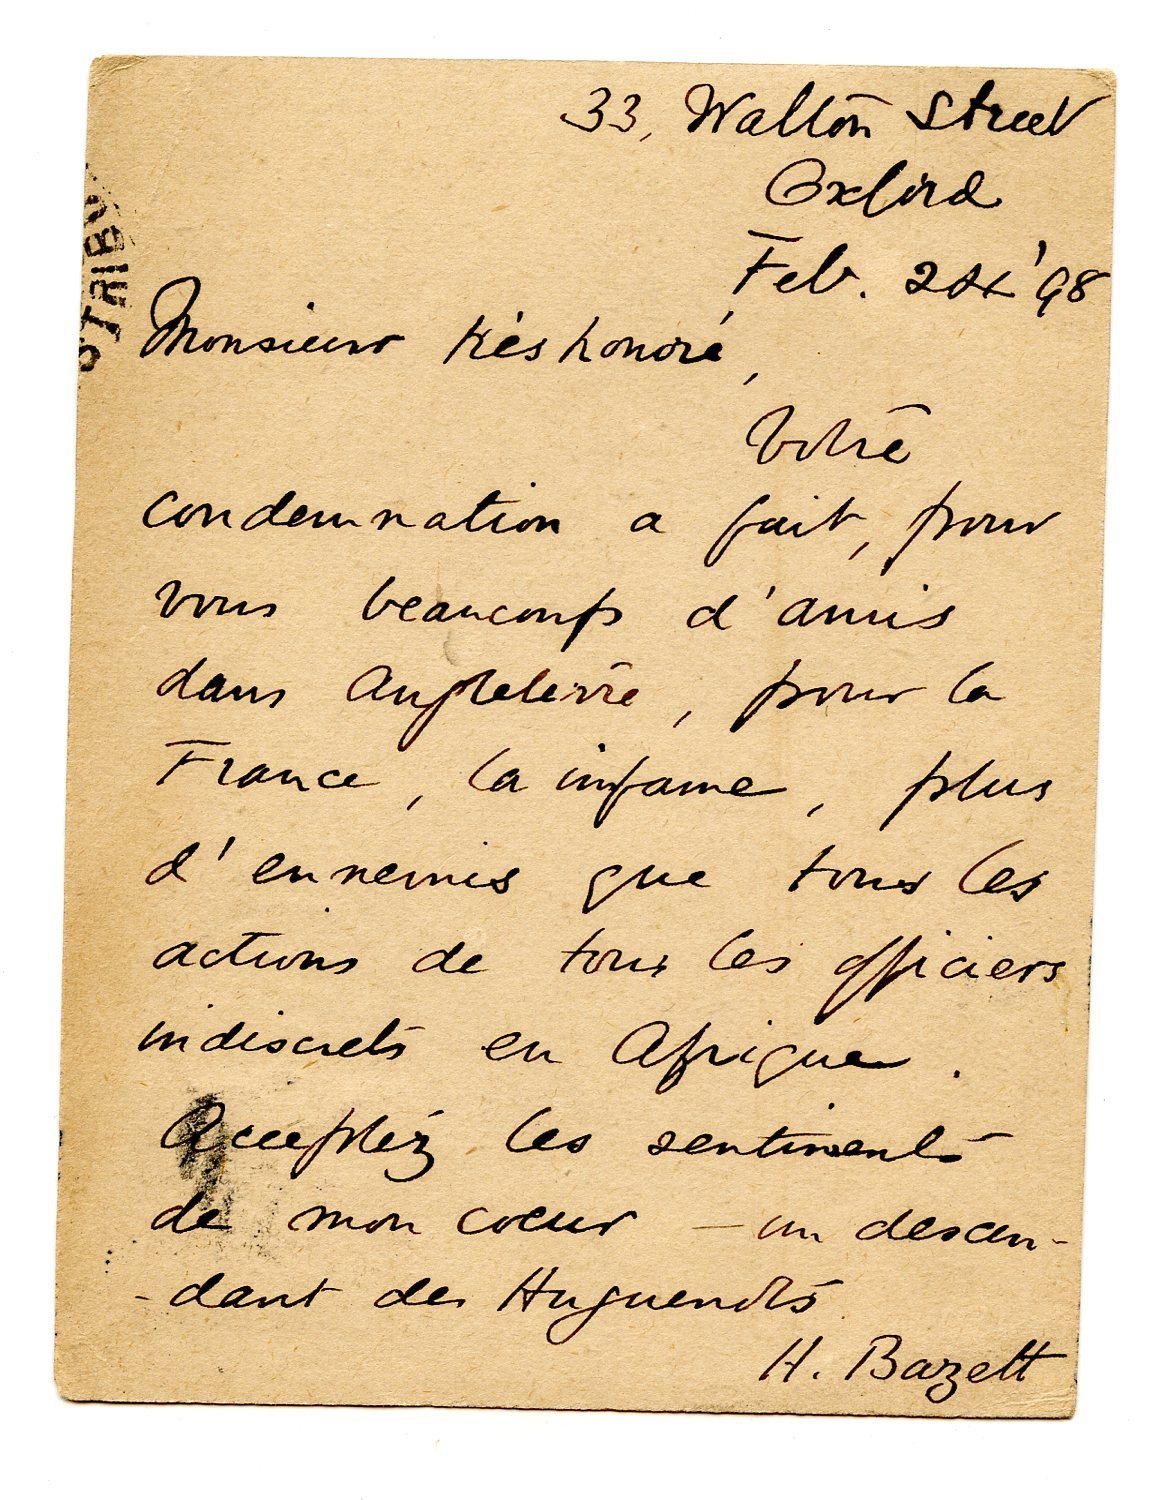 33, Walton Street
Oxford
Feb. 24 '98
STRIBU
Monsieur très honoré,
Votre
condemnation a fait, pour
vous beaucoup d'amis
dans Angleterre, pour la
France, la infame, plus
d'ennemis que tous les
actions de tous les officiers
indiscrets en Afrique.
Accepléz les sentiments
de mon coeur — un descen-
-dant des Huguenots
H. Bazett